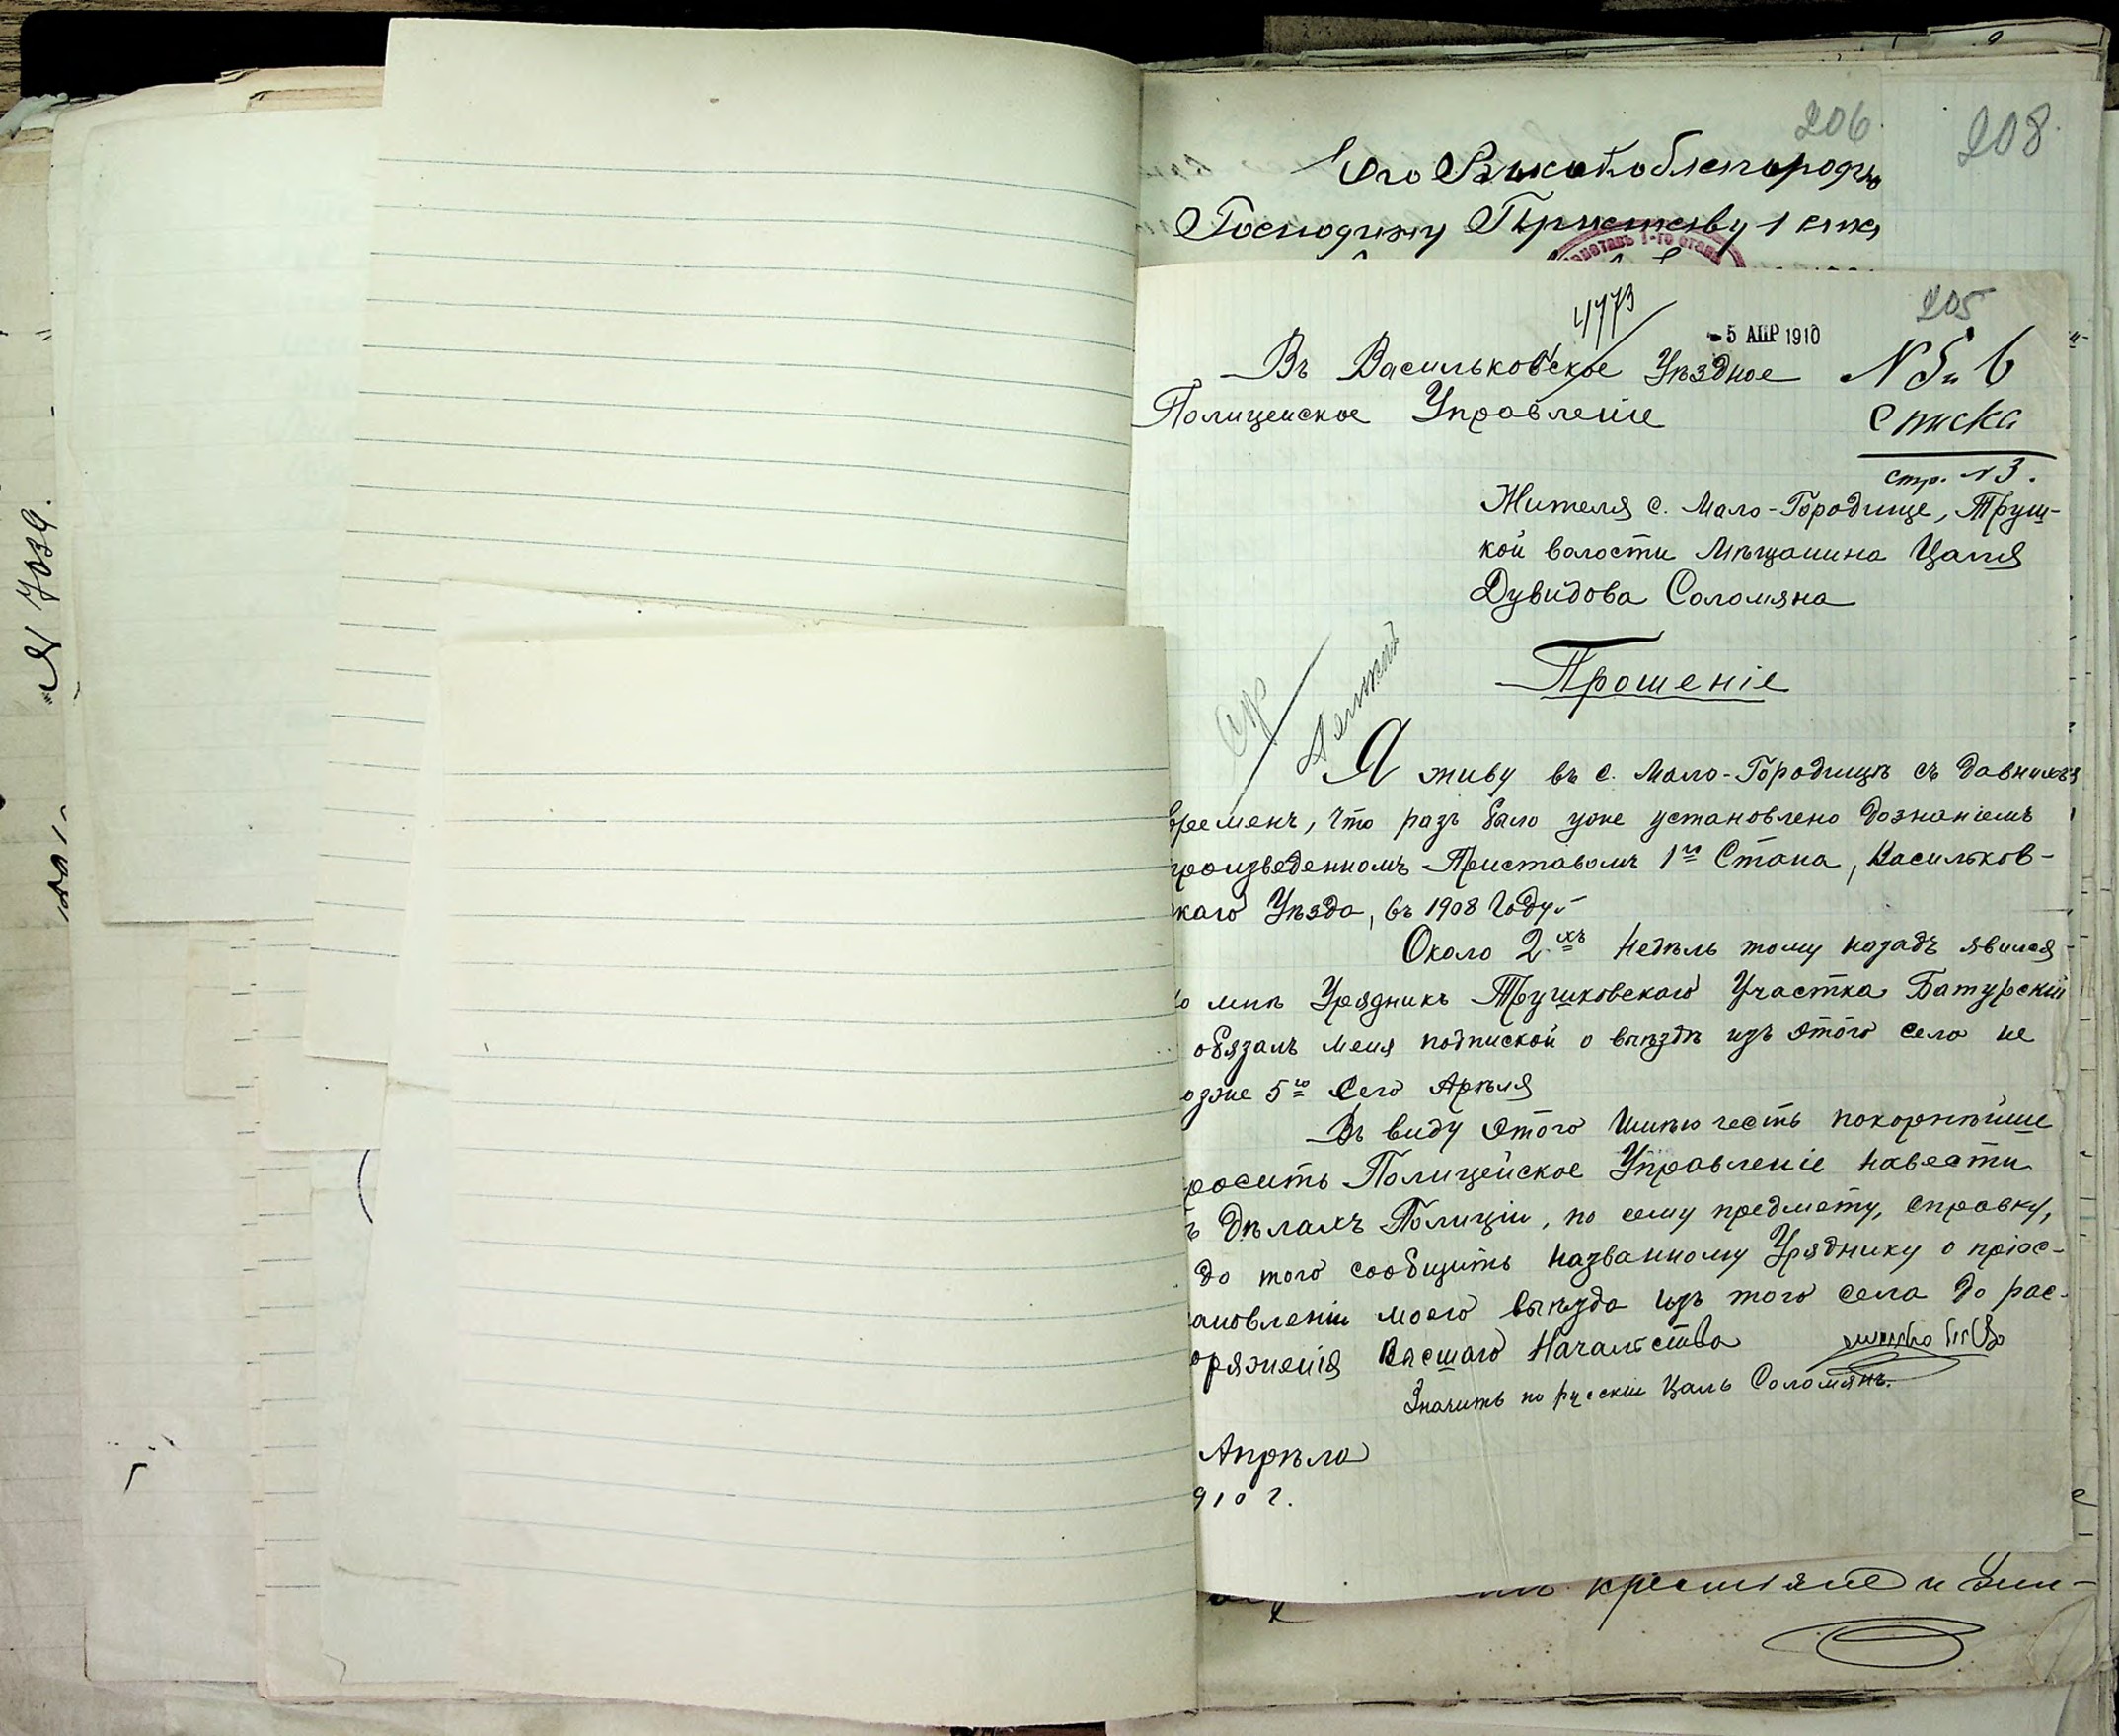 206
208
Его Высокоблагородію
Господину Приставу 1 стана
Приставъ 1-го стана
205
4773
- 5 АПР 1910
Въ Васильковское Уѣздное
Полицейское Управленіе
N 5 и 6
списка
стр. N 3.
Жителя с. Мало-Городище, Труш-
кой волости Мѣщанина Цаля
Дувидова Соломяна
Прошеніе
Я живу въ с. Мало-Городищѣ съ давнихъ
временъ, что разъ было уже установлено дознаніемъ
произведенномъ Приставомъ 1го Стана, Васильков-
скаго Уѣзда, въ 1908 Году.
Около 2хъ недѣль тому назадъ явился
ко мнѣ Урядникъ Трушковскаго Участка Батурскій
обязалъ меня подпиской о выѣздѣ изъ этого села не
озже 5го сего Апрѣля
Въ виду этого Имѣю честь покорнѣйше
росить Полицейское Управленіе навести
ъ дѣлахъ Полиціи, по сему предмету, справку,
до того сообщить названному Уряднику о пріос-
ановленіи моего выѣзда изъ того села до рас-
оряженія Высшаго Начальства
Значитъ по русски Цаль Соломянъ.
Апрѣла
910 г.
крестьяне и
N 7039.